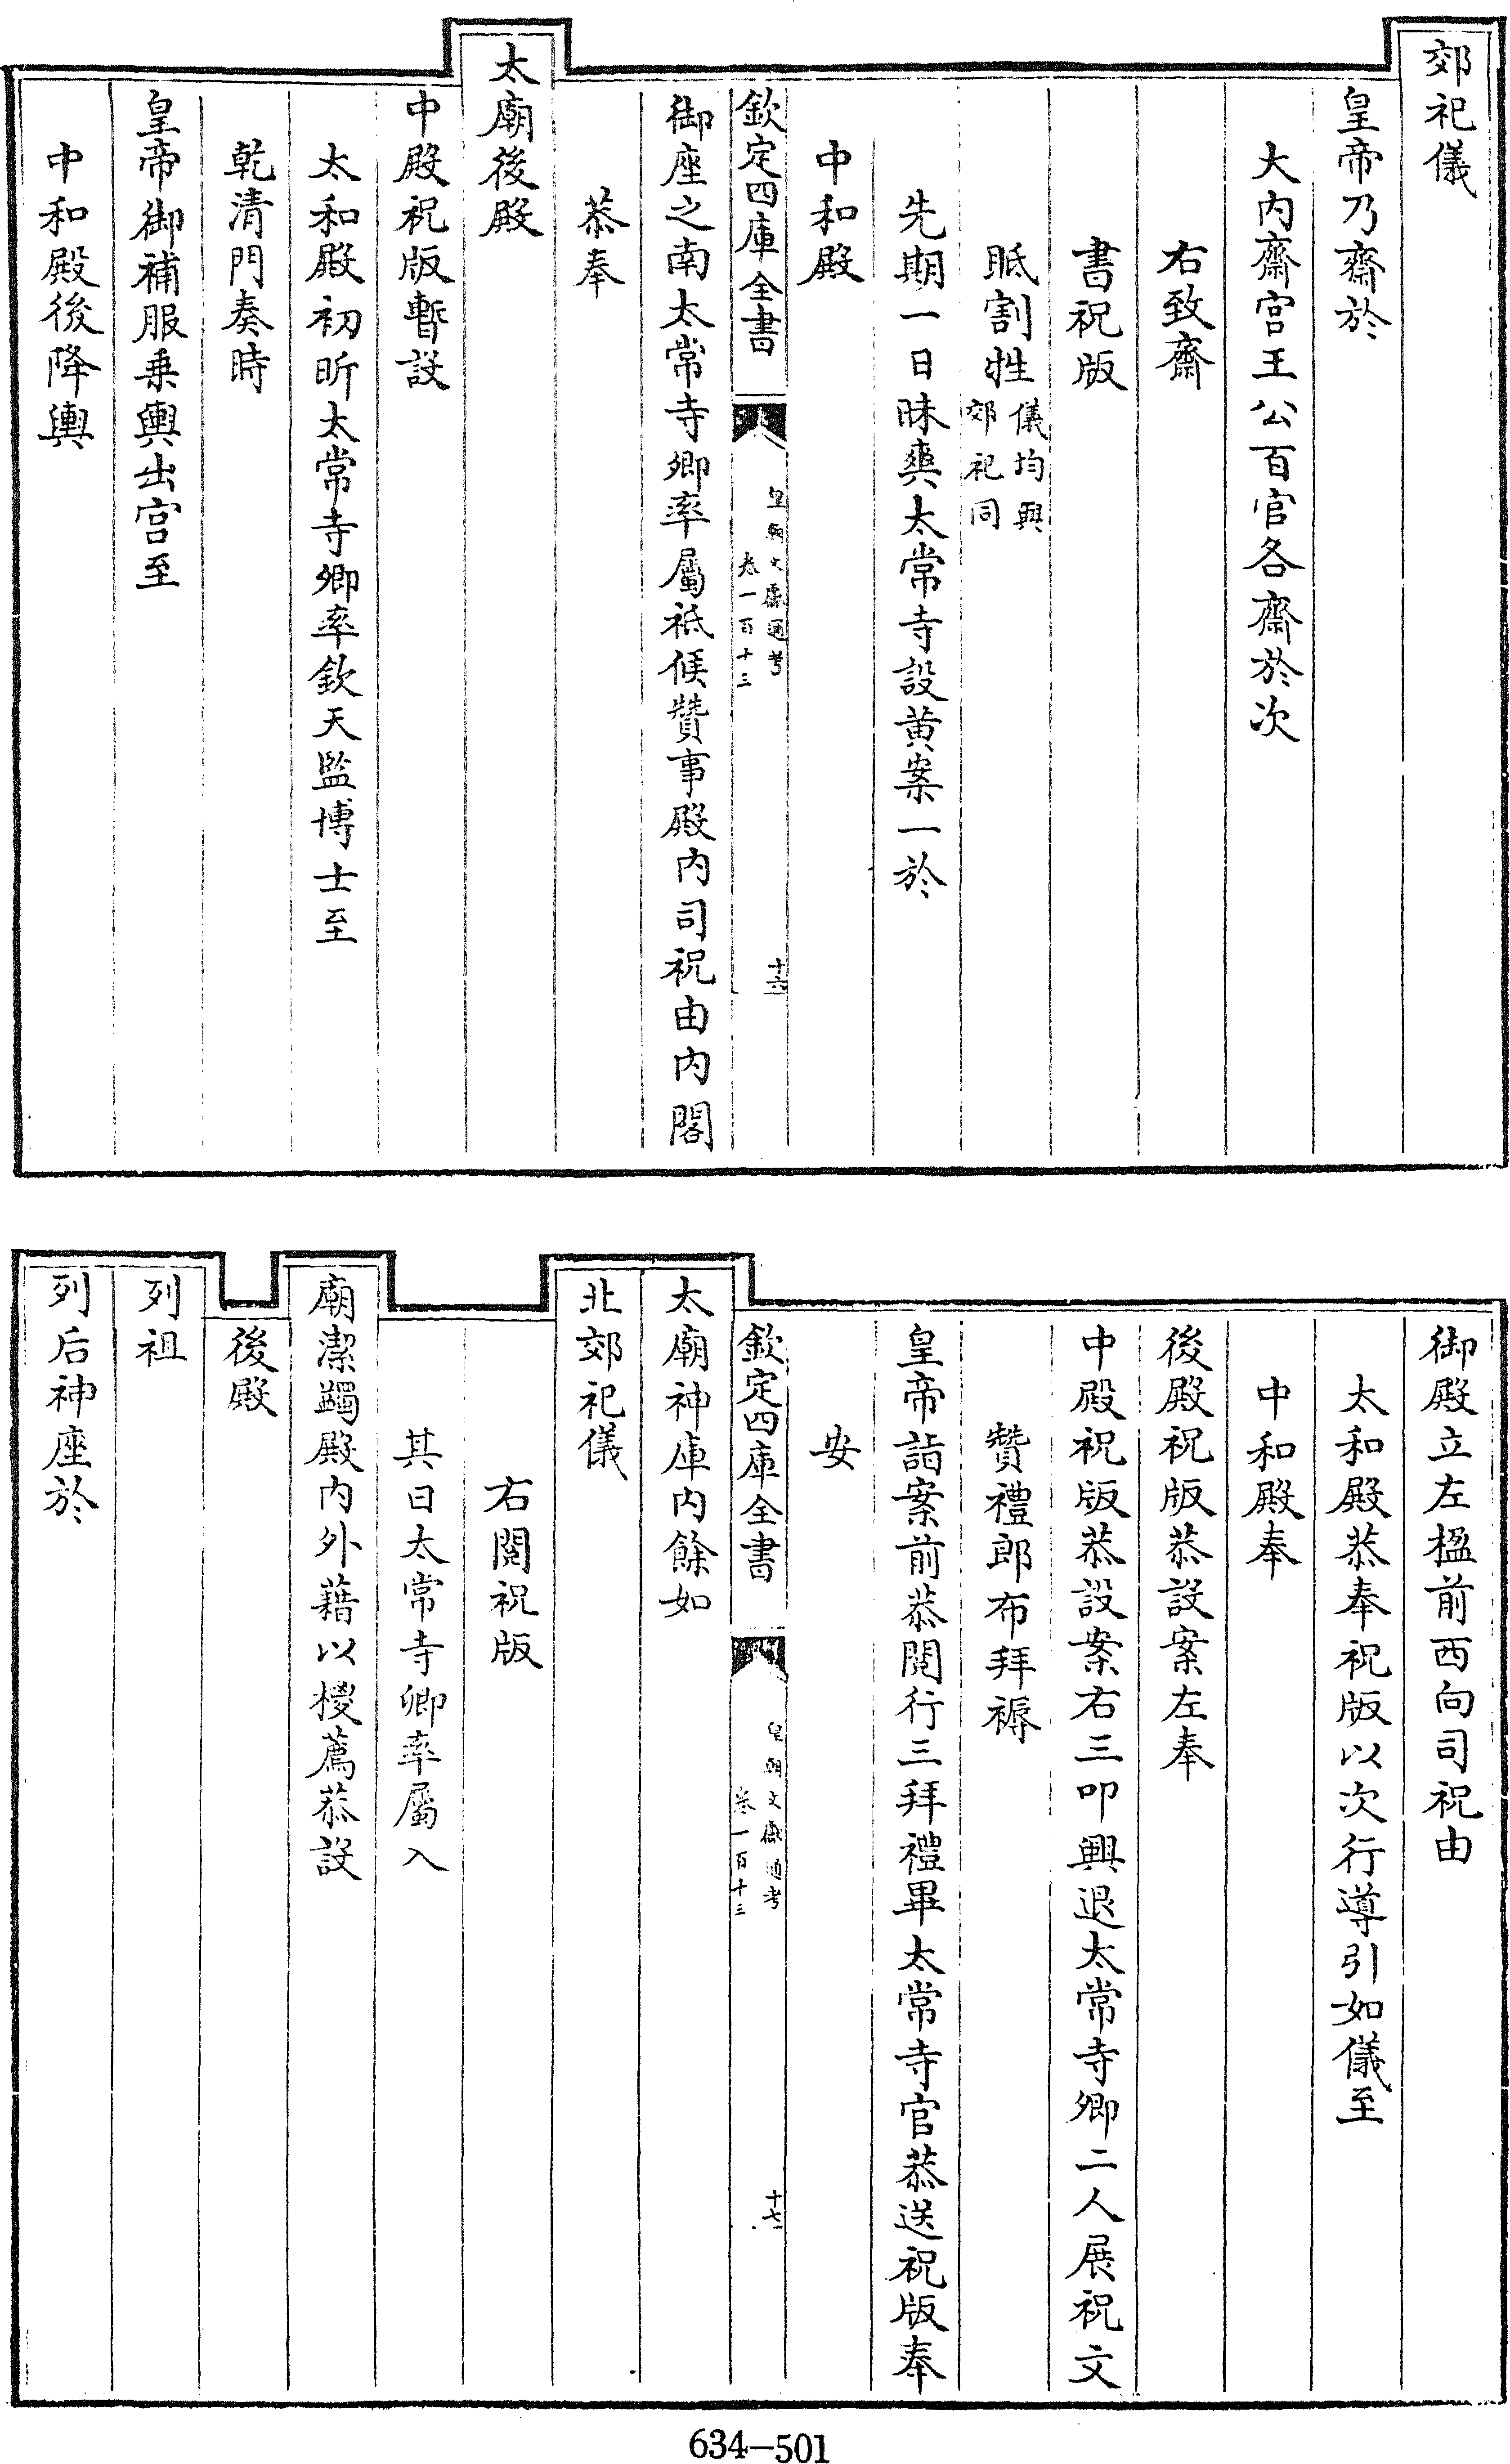 郊祀儀
皇帝乃齋於
大内齋宫王公百官各齋於次
右致齋
書祝版
眡割牲儀均與郊祀同
先期一日昧爽太常寺設黄案一於
中和殿
欽定四庫全書
皇朝文獻通考
卷一百十三
十六
御座之南太常寺卿率屬祗候贊事殿内司祝由内閣
恭奉
太廟後殿
中殿祝版暫設
太和殿初昕太常寺卿率欽天監博士至
乾清門奏時
皇帝御補服乗輿出宫至
中和殿後降輿
御殿立左楹前西向司祝由
太和殿恭奉祝版以次行導引如儀至
中和殿奉
後殿祝版恭設案左奉
中殿祝版恭設案右三叩興退太常寺卿二人展祝文
贊禮郎布拜褥
皇帝詣案前恭閲行三拜禮畢太常寺官恭送祝版奉
安
欽定四庫全書
皇朝文獻通考
卷一百十三
十七
太廟神庫内餘如
北郊祀儀
右閲祝版
其日太常寺卿率屬入
廟潔蠲殿内外藉以椶薦恭設
後殿
列祖
列后神座於
634-501